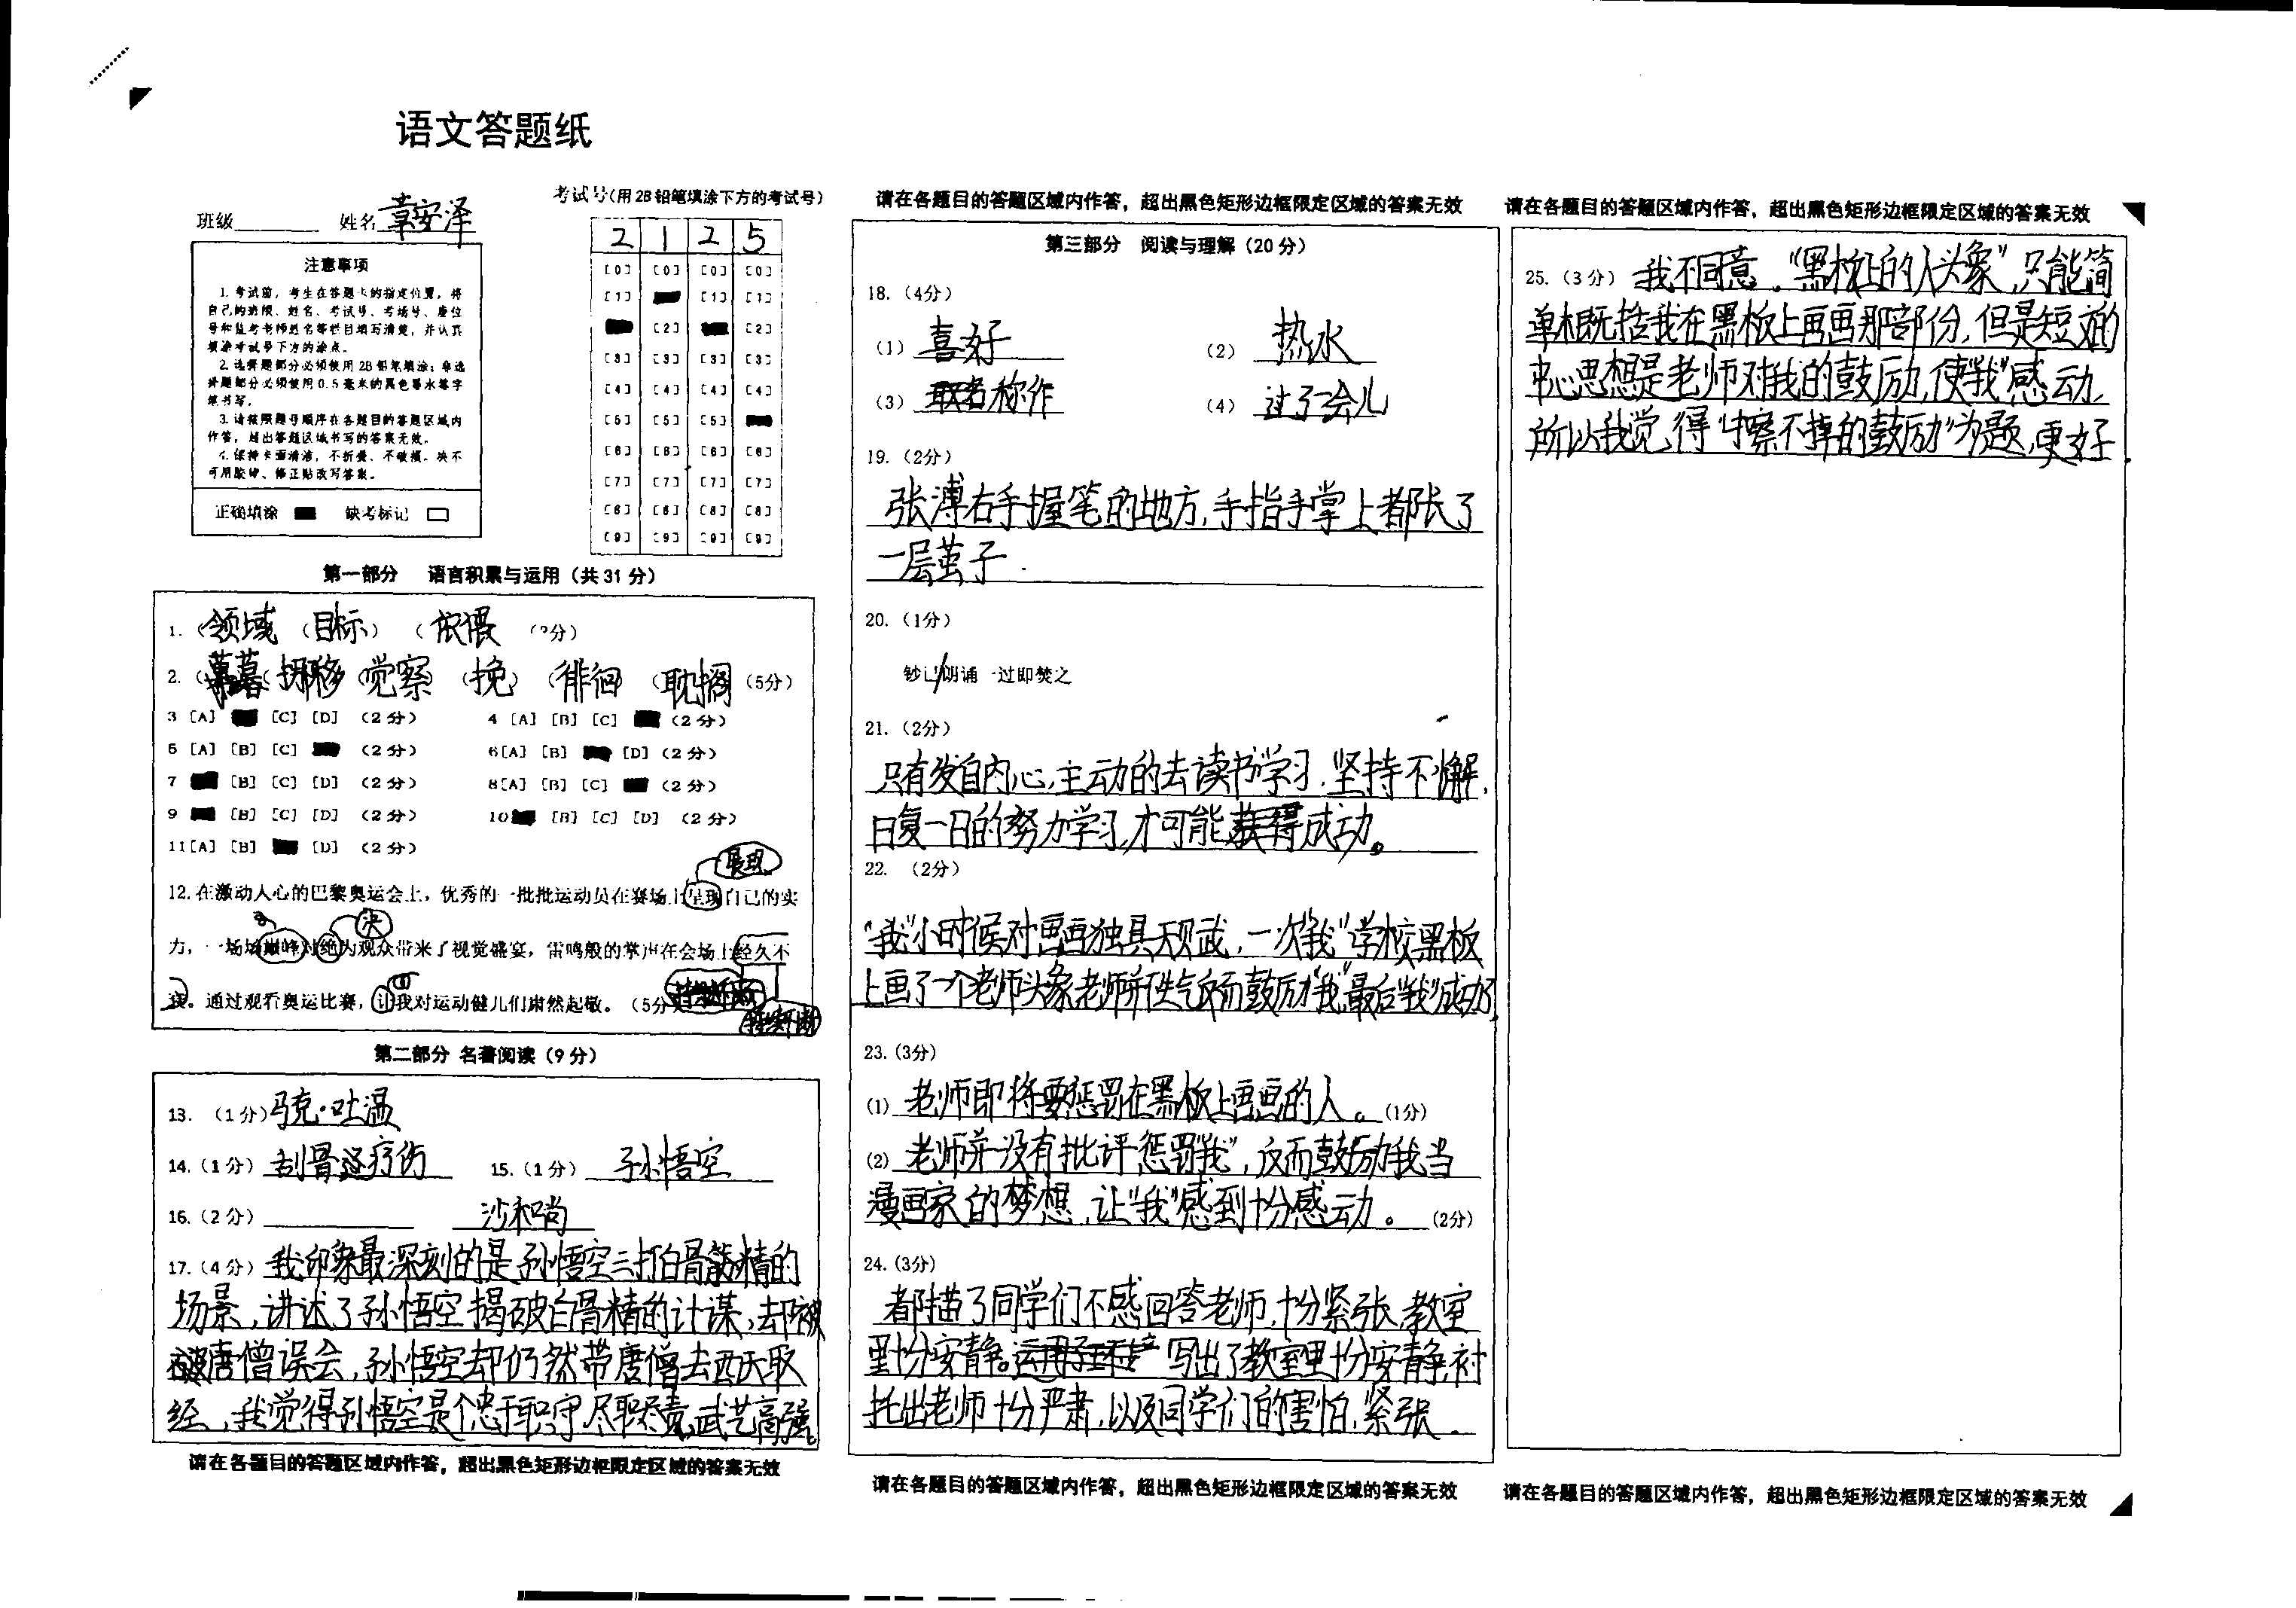 语文答题纸
班级 姓名 章安泽
考试号(用2B铅笔填涂下方的考试号)
2 1 2 5
[0] [0] [0] [0]
[1] [1] [1]
[2] [2]
[3] [3] [3] [3]
[4] [4] [4] [4]
[5] [5] [5]
[6] [6] [6] [6]
[7] [7] [7] [7]
[8] [8] [8] [8]
[9] [9] [9] [9]
注意事项
1. 考试前，考生在答题卡的指定位置，将
自己的班级、姓名、考试号、考场号、座位
号和监考老师姓名等栏目填写清楚，并认真
填涂考试号下方的涂点。
2. 选择题部分必须使用2B铅笔填涂；非选
择题部分必须使用0.5毫米的黑色墨水签字
笔书写。
3. 请按照题号顺序在各题目的答题区域内
作答，超出答题区域书写的答案无效。
4. 保持卡面清洁，不折叠、不破损。决不
可用胶带、修正贴改写答案。
正确填涂 缺考标记
第一部分 语言积累与运用（共31分）
1.（领域（目标）（依偎 （ 分）
2.（ 暮（ 拐移（觉察（挽）（徘徊（耽搁（5分）
3 [A] [C] [D] （2分） 4 [A] [B] [C] （2分）
5 [A] [B] [C] （2分） 6[A] [B] [D]（2分）
7 [B] [C] [D] （2分） 8[A] [B] [C] （2分）
9 [B] [C] [D] （2分） 10 [B] [C] [D] （2分）
11[A] [B] [D] （2分）
展现
12.在激动人心的巴黎奥运会上，优秀的一批批运动员在赛场上呈现自己的实
决
力，一场场巅峰对绝为观众带来了视觉盛宴，雷鸣般的掌声在会场上经久不
衰。通过观看奥运比赛，让我对运动健儿们肃然起敬。（5分）
第二部分 名著阅读（9分）
13. （1分）马克·吐温
14.（1分） 刮骨 疗伤 15.（1分） 孙悟空
16.（2分） 沙和尚
17.（4分）我印象最深刻的是孙悟空三打白骨精的
场景，讲述了孙悟空揭破白骨精的计谋，却被
唐僧误会，孙悟空却仍然带唐僧去西天取
经，我觉得孙悟空是个忠于职守尽职尽责，武艺高强。
请在各题目的答题区域内作答，超出黑色矩形边框限定区域的答案无效
请在各题目的答题区域内作答，超出黑色矩形边框限定区域的答案无效
第三部分 阅读与理解（20分）
18.（4分）
（1） 喜好 （2） 热水
（3） 取名称作 （4） 过了一会儿
19.（2分）
张溥右手握笔的地方，手指手掌上都长了
一层茧子.
20.（1分）
钞已/朗诵一过即焚之
21.（2分）
只有发自内心，主动的去读书学习，坚持不懈，
日复一日的努力学习，才可能获得成功。
22. （2分）
“我”小时候对画画独具天赋，一次“我”学校黑板
上画了一个老师头象，老师并 生气反而鼓励“我”，最后“我”成功了，
23.（3分）
（1） 老师即将要惩罚在黑板上画画的人。（1分）
（2） 老师并没有批评，惩罚“我”，反而鼓励我当
漫画家的梦想，让“我”感到十分感动。（2分）
24.（3分）
都描了同学们不感回答老师，十分紧张，教室
里十分安静。 写出了教室里十分安静，衬
托出老师十分严肃，以及同学们的害怕，紧张.
请在各题目的答题区域内作答，超出黑色矩形边框限定区域的答案无效
请在各题目的答题区域内作答，超出黑色矩形边框限定区域的答案无效
25.（3分） 我不同意，“黑板上的人头象”，只能简
单概括我在黑板上画画那部份，但是短文的
中心思想是老师对我的鼓励，使“我”感动，
所以我觉得“擦不掉的鼓励”为题，更好.
请在各题目的答题区域内作答，超出黑色矩形边框限定区域的答案无效